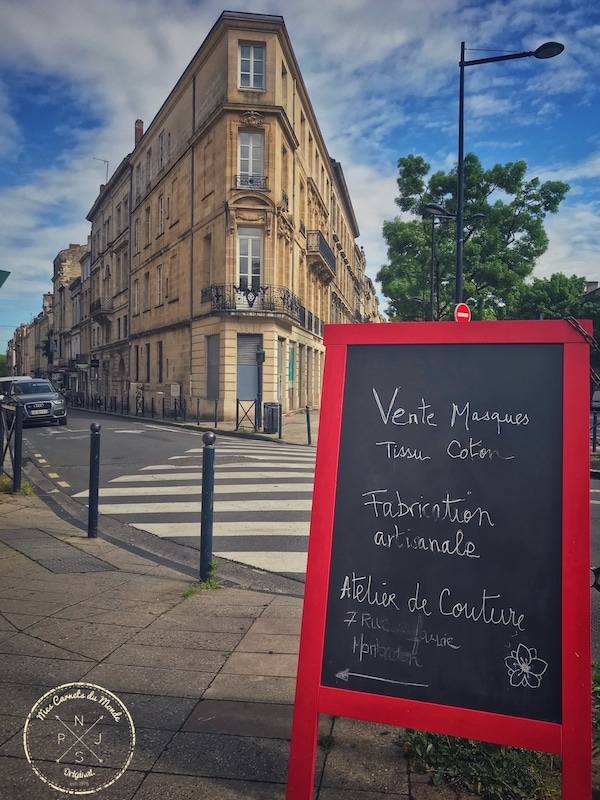 Vente Masques
Tissu Coton
Fabrication
artisanale
Atelier de Couture
7 Rue
Mes Carnets du Monde
N
P J
S
Original